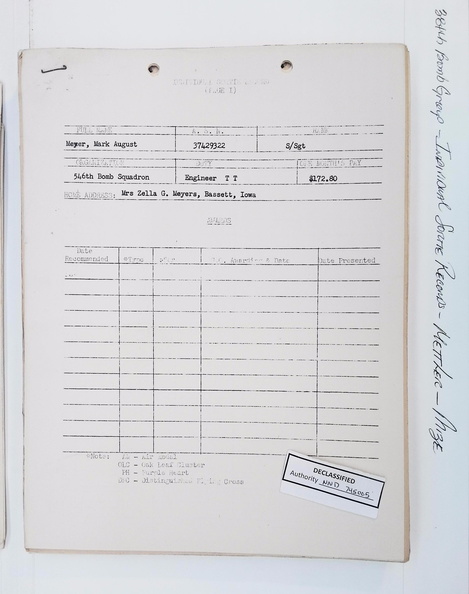 INDIVIDUAL SORTIE RECORD
(PART I)
FULL NAME A. S. N. RANK
Meyer, Mark August 37429322 S/Sgt
ORGANIZATION DUTY ONE MONTH'S PAY
546th Bomb Squadron Engineer T T $172.80
HOME ADDRESS: Mrs Zella G. Meyers, Bassett, Iowa
AWARDS
Date
Recommended G.O. Awarding & Date Date Presented
*Note: AM - Air Medal
OLC - Oak Leaf Cluster
PH - Purple Heart
DFC - Distinguished Flying Cross
DECLASSIFIED
Authority NND 745005
384th Bomb Group - Individual Sortie Records - Mettler - Mize